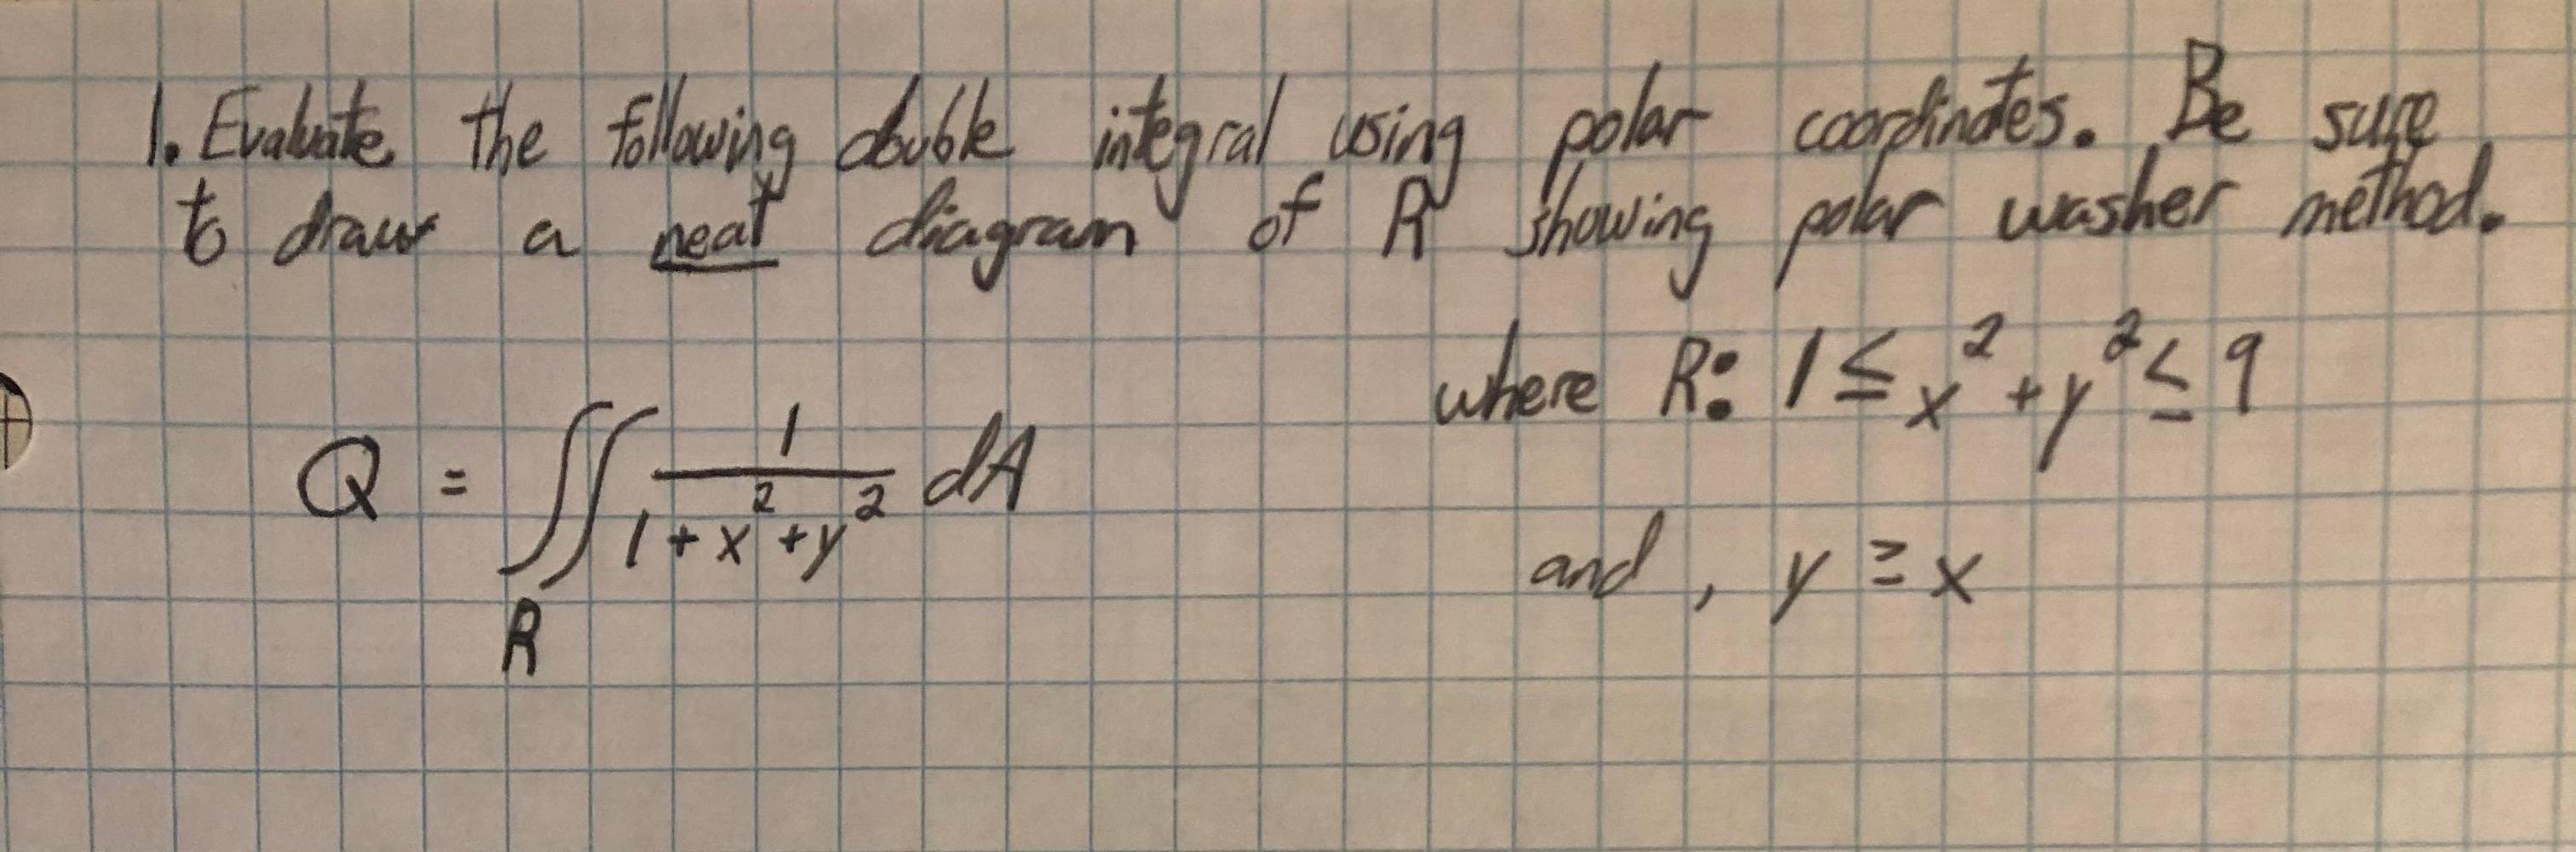 1. Evaluate the following double integral using polar coordinates. Be sure
to draw a neat diagram of R showing polar washer method.
where R: 1 ≤ x² + y² ≤ 9
Q = ∬_R 1/(1 + x² + y²) dA
and, y ≥ x